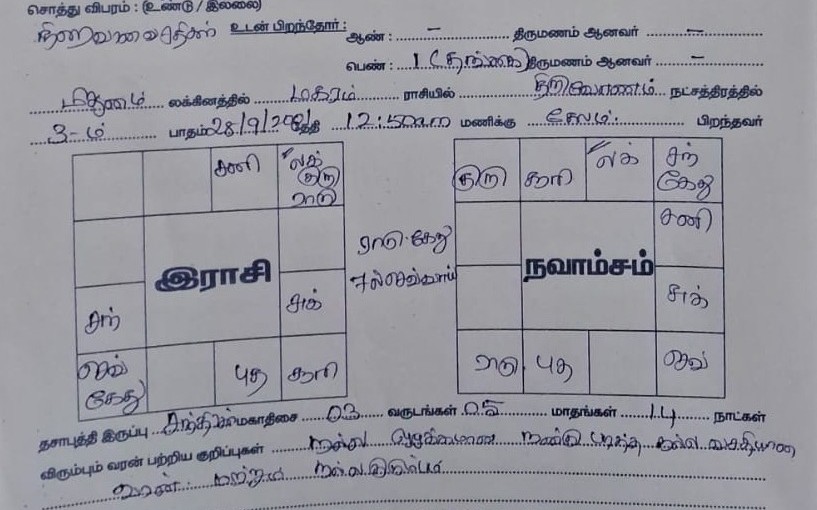 சொத்து விபரம் : (உண்டு / இல்லை)
நிறைய வசதிகள் உடன் பிறந்தோர் : ஆண் : – திருமணம் ஆனவர் –
பெண் : 1 (தங்கை) திருமணம் ஆனவர் –
மிதுனம் லக்கினத்தில் மகரம் ராசியில் திருவோணம் நட்சத்திரத்தில்
3-ம் பாதம் 28/9/2001 தேதி 12:50am மணிக்கு சேலம். பிறந்தவர்
சனி லக் குரு ராகு
குரு சூரி லக் சந் கேது
ராகு கேது
சனி
7ல் செவ்வாய்
இராசி
நவாம்சம்
சந் சுக்
சுக்
செவ் கேது புத சூரி
ராகு புத செவ்
தசாபுத்தி இருப்பு சந்திரன் மகாதிசை 03 வருடங்கள் 05 மாதங்கள் 14 நாட்கள்
விரும்பும் வரன் பற்றிய குறிப்புகள் நல்ல நன்கு படித்த நல்ல வசதியான
வரன் மற்றும் நல்ல குடும்பம்